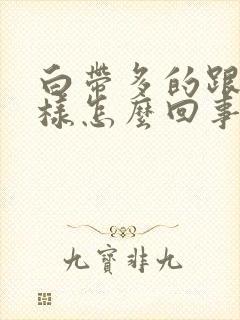 白帶多的跟
樣怎麼回事
九寶非九